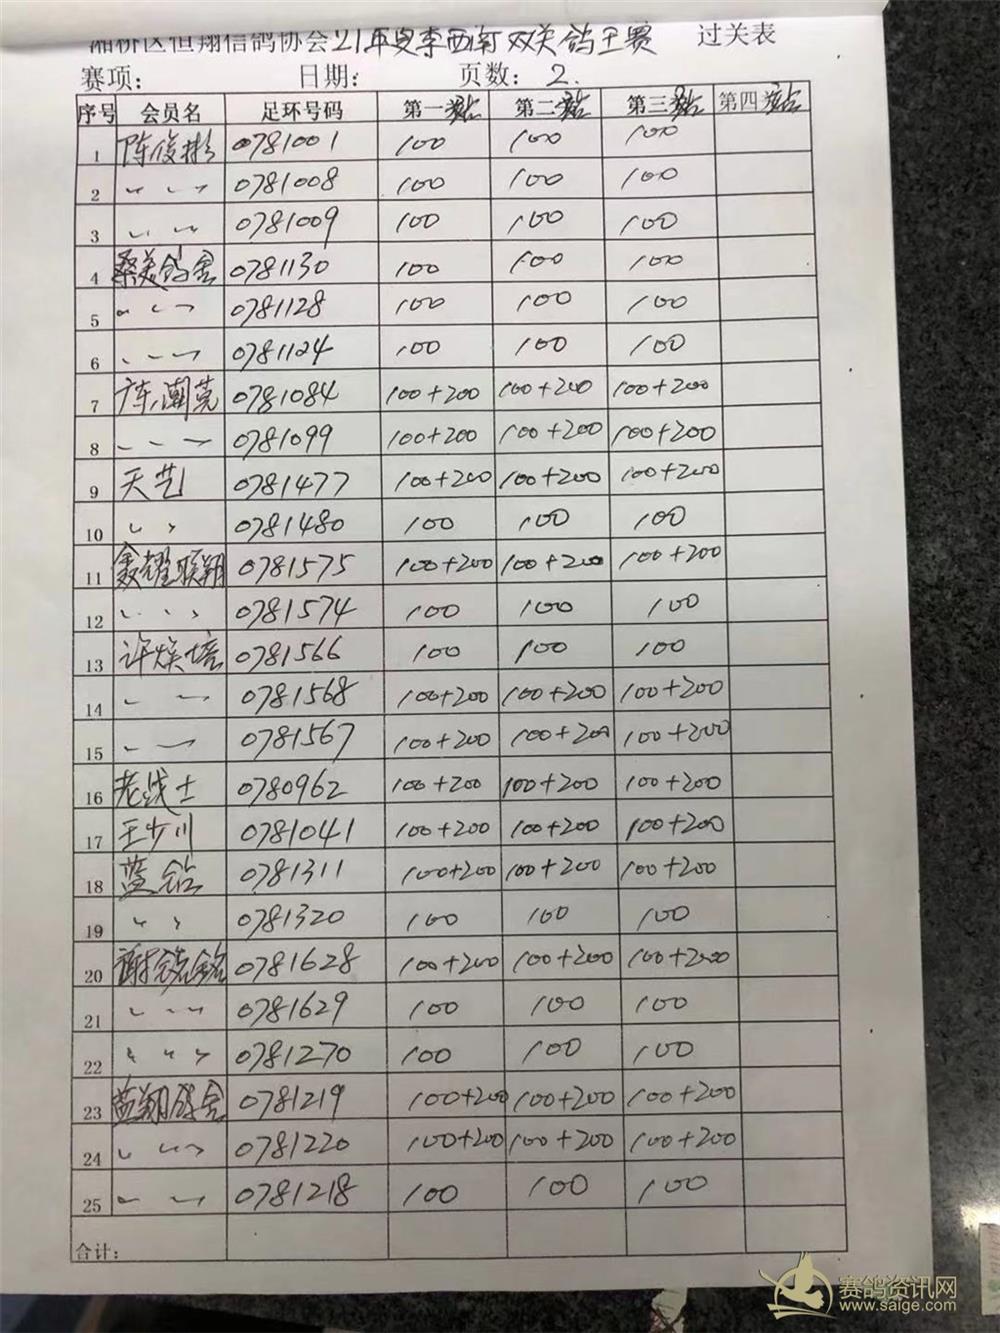 湘桥区恒翔信鸽协会21年夏季西南双关鸽王赛 过关表
赛项: 日期: 页数: 2.
序号 会员名 足环号码 第一站 第二站 第三站 第四站
1 陈俊彬 0781001 100 100 100
2 〃 〃 〃 0781008 100 100 100
3 〃 〃 0781009 100 100 100
4 桑美鸽舍 0781130 100 100 100
5 〃 〃 〃 0781128 100 100 100
6 〃 〃 〃 0781124 100 100 100
7 广东潮莞 0781084 100+200 100+200 100+200
8 〃 〃 〃 0781099 100+200 100+200 100+200
9 天艺 0781477 100+200 100+200 100+200
10 〃 〃 0781480 100 100 100
11 鑫耀联翔 0781575 100+200 100+200 100+200
12 〃 〃 〃 0781574 100 100 100
13 许焕培 0781566 100 100 100
14 〃 〃 0781568 100+200 100+200 100+200
15 〃 〃 0781567 100+200 100+200 100+200
16 老战士 0780962 100+200 100+200 100+200
17 王少川 0781041 100+200 100+200 100+200
18 蓝钻 0781311 100+200 100+200 100+200
19 〃 〃 0781320 100 100 100
20 谢 0781628 100+200 100+200 100+200
21 〃 〃 〃 0781629 100 100 100
22 〃 〃 〃 0781270 100 100 100
23 蓝翔鸽舍 0781219 100+200 100+200 100+200
24 〃 〃 〃 0781220 100+200 100+200 100+200
25 〃 〃 0781218 100 100 100
合计:
赛鸽资讯网
www.saige.com